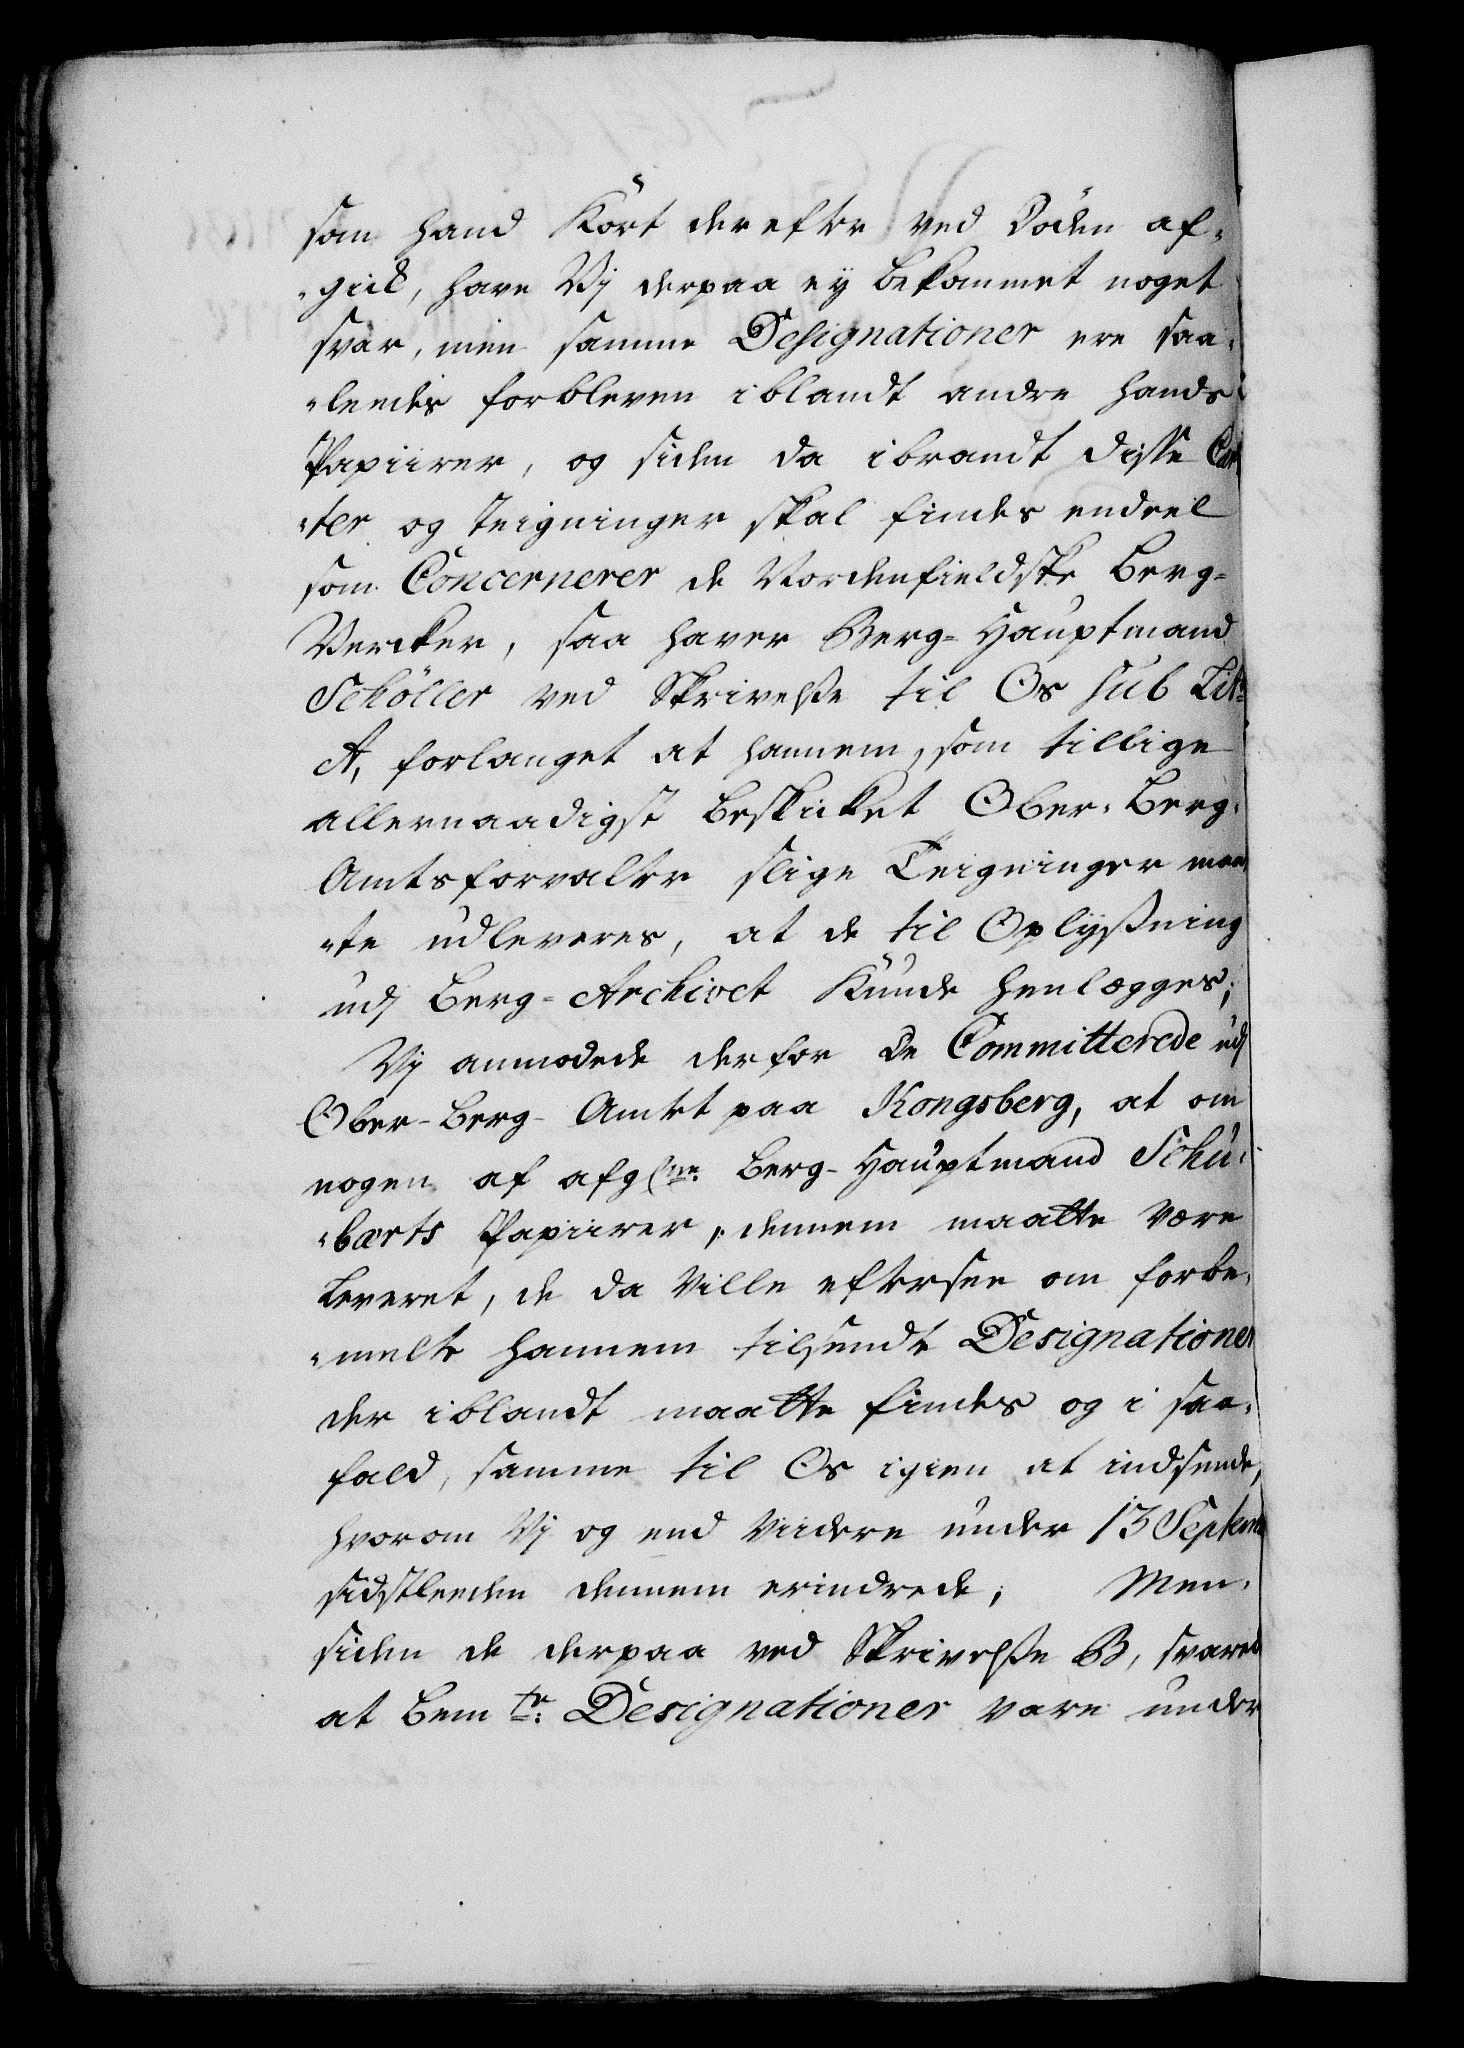 som hand Kort derefter ved Døden af-
-gick, have Vj derpaa ey bekommet noget
svar, men samme Designationer ere saa-
-leedes forbleven iblandt andre hands
Papiirer, og siden da iblandt disse Car
-ter og Teigninger skal findes endeel
som Concernerer de Nordenfieldske Berg-
Vercker, saa haver Berg-Hauptmand
Schöller ved Skrivelsse til Os sub Litr:
A, forlanget at hannem, som tillige
allernaadigst beskicket Ober-Berg-
Amtsforvalter slige Teigninger maa
-te udleveres, at de til Oplyssning
udj Berg-Archivet Kunde henlægges;
Vj anmodede derfor De Committerede udj
Ober-Berg-Amtet paa Kongsberg, at om
nogen af afgl:ne: Berg-Hauptmand Schu-
-bærts Papiirer, dennem maatte være
Leveret, de da Ville eftersee om forbe-
-melte hannem tilsendte Designationer
der iblandt maatte findes og i saa-
fald, samme til Os igien at indsende,
hvorom Vj og end Viidere under 13 Septemb
sidstleeden dennem erindrede; Men-
siden de derpaa ved Skrivelsse B, svared
at bem:te: Designationer vare under